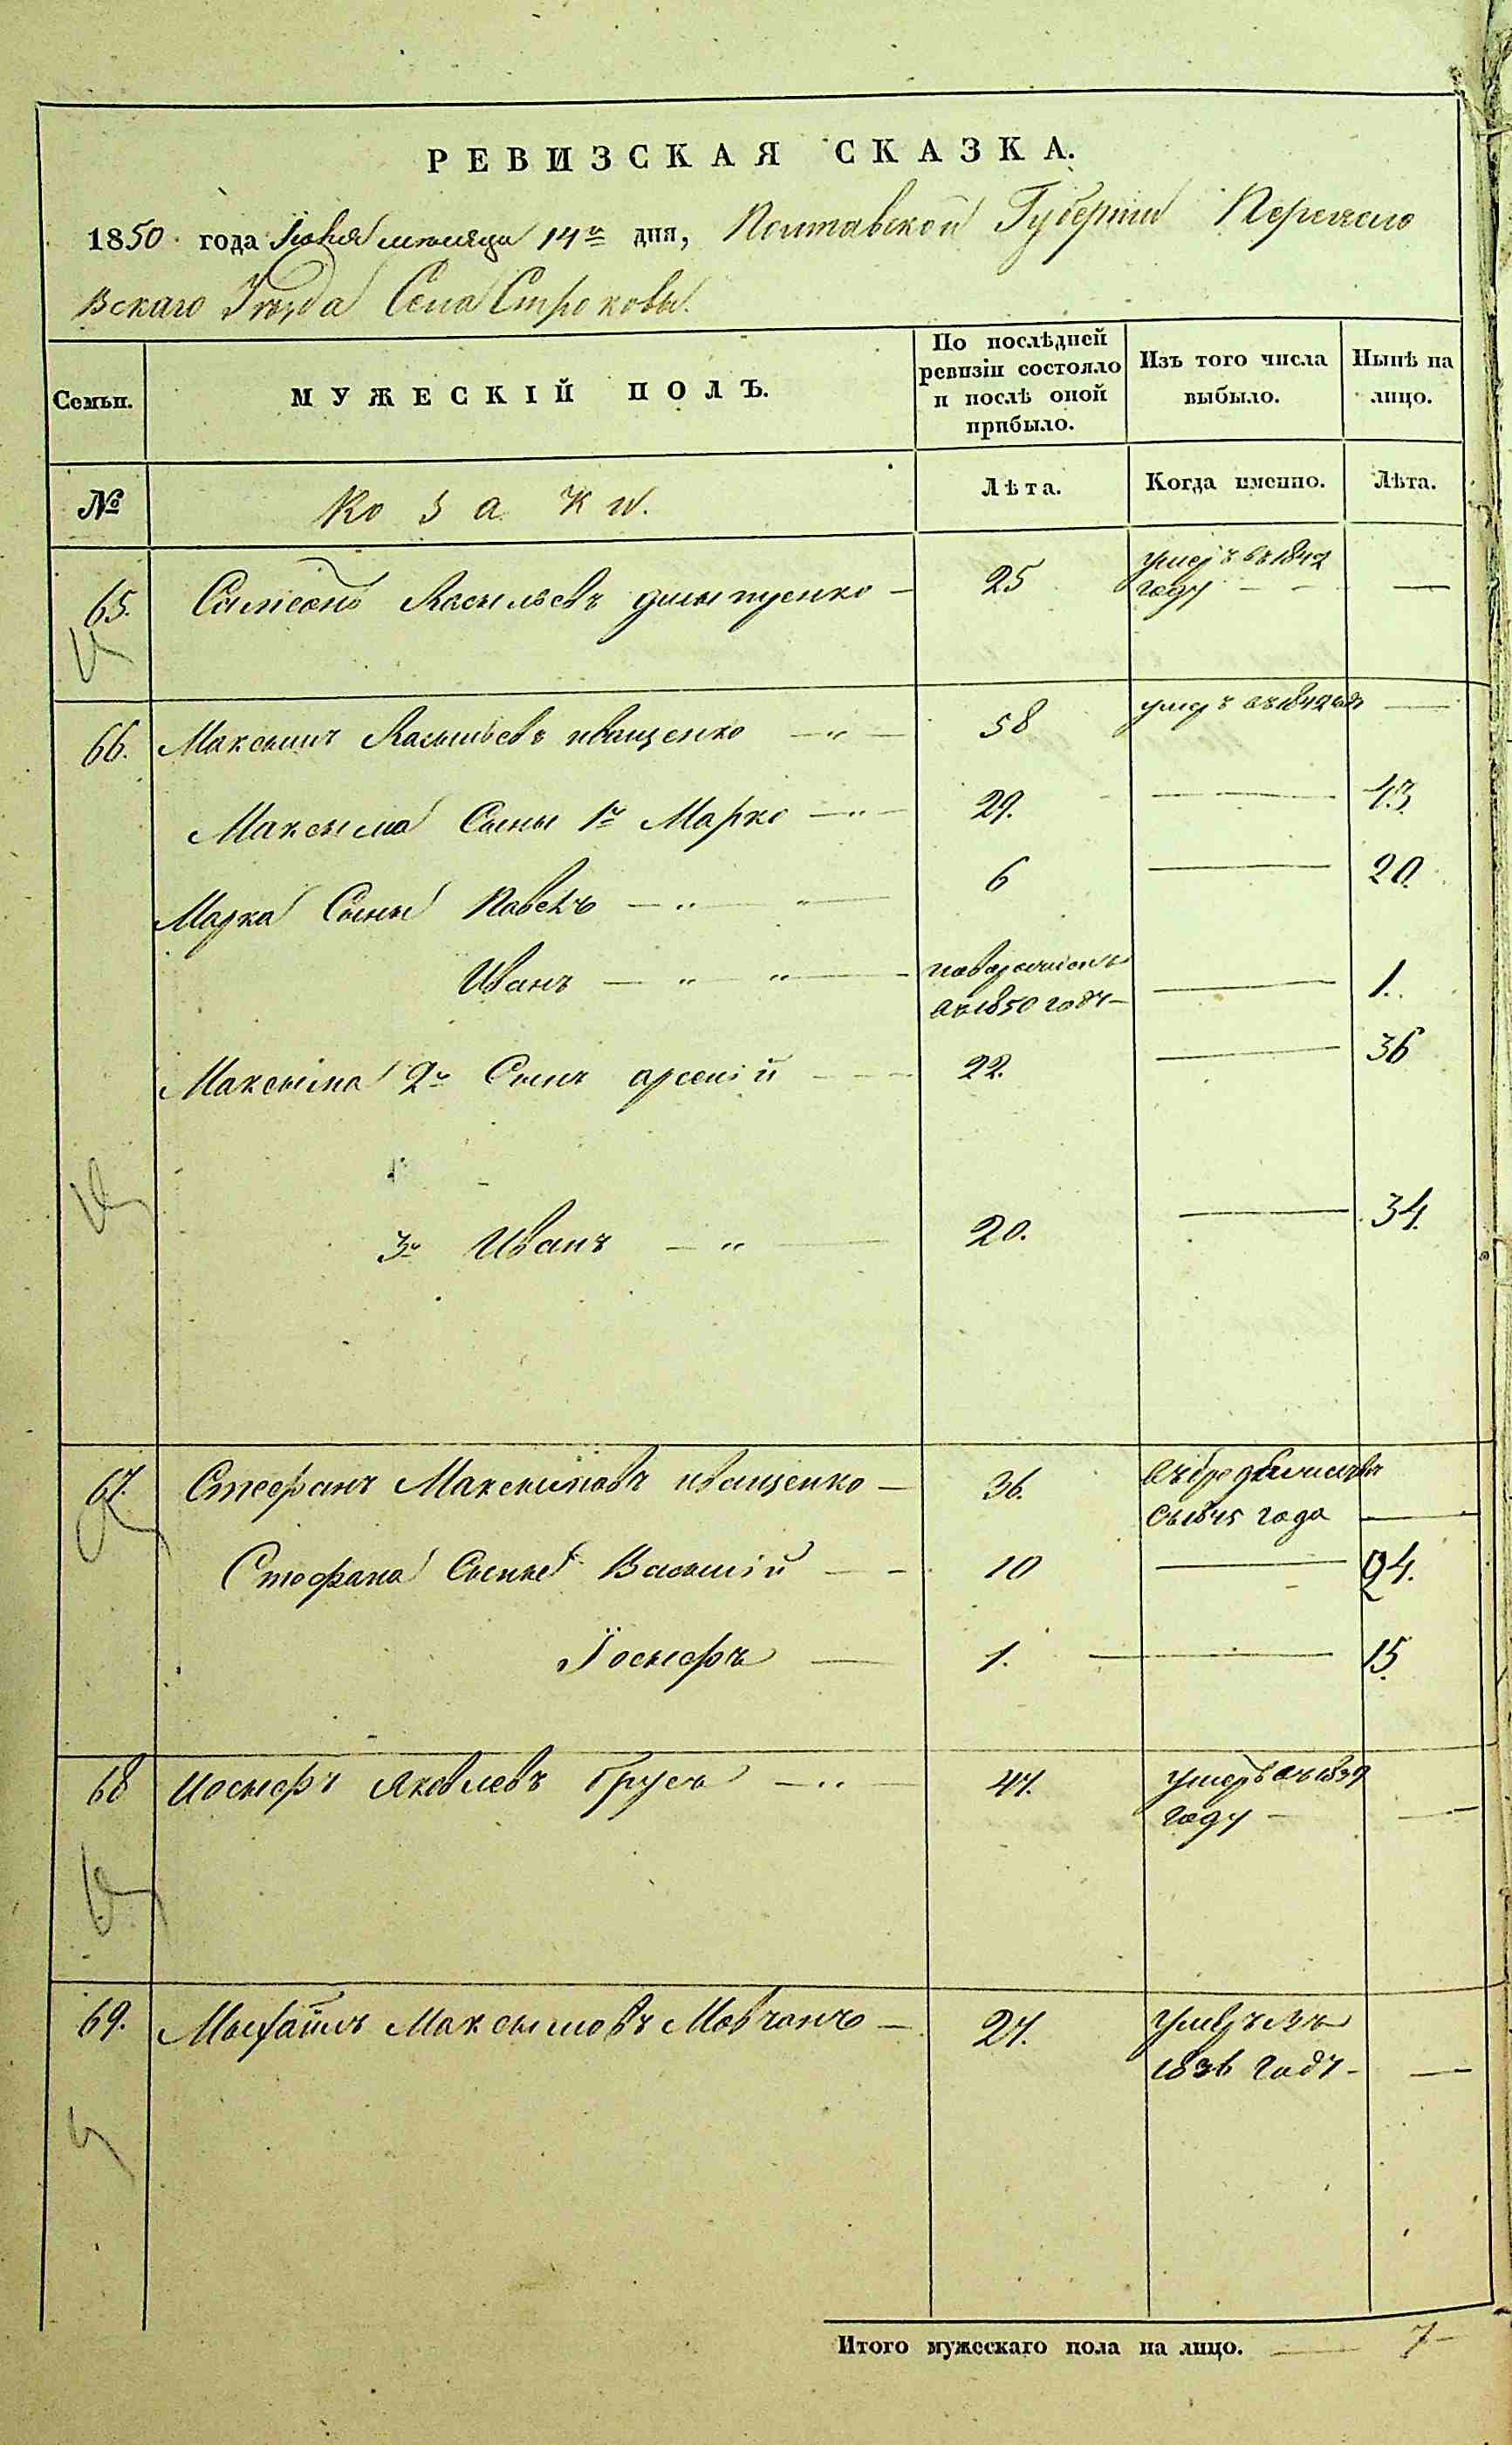 РЕВИЗСКАЯ СКАЗКА.
1850 года Іюня месяца 14го дня, Полтавской Губерніи Переясло
вскаго Уезда Села Строковы.
Семьи.
МУЖЕСКІЙ ПОЛЪ.
По послѣдней ревизіи состояло и послѣ оной прибыло.
Изъ того числа выбыло.
Нынѣ на лицо.
№
Козаки.
Лѣта.
Когда именно.
Лѣта.
65. Симеонъ Васыльевъ — 25 умеръ въ 1842 году — —
66. Максымъ Васыльевъ иващенко — 58 умеръ въ 1842 —
Максыма Сыны 1й Марко — 29. — 43.
Марка Сыны Павелъ — 6 — 20.
Иванъ — новорожденъ въ 1850 году — 1.
Максыма 2й Сынъ арсеній — 22. — 36
3й Иванъ — 20. — 34.
67. Стефанъ Максымовъ иващенко — 36. съ 1845 года —
Стефана Сыны Васылій — 10 — 24.
Іосыфъ — 1. — 15.
68 Иосыфъ Яковлевъ Грусъ — 47. умеръ въ 1839 году — —
69. Мыхаилъ Максымовъ Мовчанъ — 27. умеръ въ 1836 году — —
Итого мужескаго пола на лицо. — 7